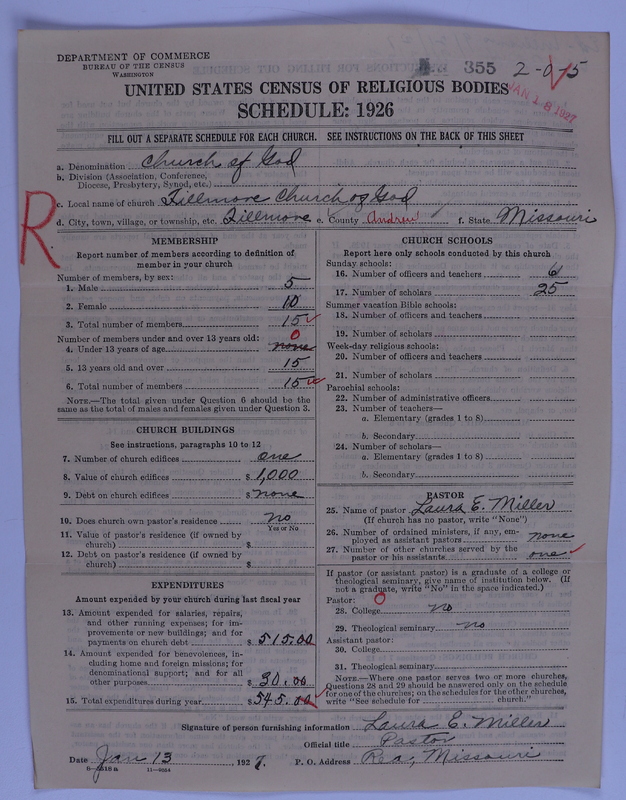 DEPARTMENT OF COMMERCE
BUREAU OF THE CENSUS
WASHINGTON
355 2-0-15
JAN 18 1927
UNITED STATES CENSUS OF RELIGIOUS BODIES
SCHEDULE: 1926
FILL OUT A SEPARATE SCHEDULE FOR EACH CHURCH. SEE INSTRUCTIONS ON THE BACK OF THIS SHEET
R
a. Denomination Church of God
b. Division (Association, Conference, Diocese, Presbytery, Synod, etc.)
c. Local name of church Fillmore Church of God
d. City, town, village, or township, etc. Fillmore e. County Andrew f. State Missouri
MEMBERSHIP
Report number of members according to definition of
member in your church
Number of members, by sex:
1. Male 5
2. Female 10
3. Total number of members 15
Number of members under and over 13 years old: 0
4. Under 13 years of age none
5. 13 years old and over 15
6. Total number of members 15
NOTE.—The total given under Question 6 should be
same as the total of males and females given under Question 3.
CHURCH BUILDINGS
See instructions, paragraphs 10 to 12
7. Number of church edifices one
8. Value of church edifices $ 1,000
9. Debt on church edifices $ none
10. Does church own pastor's residence no
Yes or No
11. Value of pastor's residence (if owned by
church) $
12. Debt on pastor's residence (if owned by
church) $
EXPENDITURES
Amount expended by your church during last fiscal year
13. Amount expended for salaries, repairs,
and other running expenses; for im-
provements or new buildings; and for
payments on church debt $ 515.00
14. Amount expended for benevolences, in-
cluding home and foreign missions; for
denominational support; and for all
other purposes $ 30.00
15. Total expenditures during year $ 545.00
CHURCH SCHOOLS
Report here only schools conducted by this church
Sunday schools:
16. Number of officers and teachers 6
17. Number of scholars 25
Summer vacation Bible schools:
18. Number of officers and teachers
19. Number of scholars
Week-day religious schools:
20. Number of officers and teachers
21. Number of scholars
Parochial schools:
22. Number of administrative officers
23. Number of teachers—
a. Elementary (grades 1 to 8)
b. Secondary
24. Number of scholars—
a. Elementary (grades 1 to 8)
b. Secondary
PASTOR
25. Name of pastor Laura E. Miller
(If church has no pastor, write "None")
26. Number of ordained ministers, if any, em-
ployed as assistant pastors none
27. Number of other churches served by the
pastor or his assistants one
If pastor (or assistant pastor) is a graduate of a college or
theological seminary, give name of institution below. (If
not a graduate, write "No" in the space indicated.)
Pastor: 0
28. College no
29. Theological seminary no
Assistant pastor:
30. College
31. Theological seminary
NOTE.—Where one pastor serves two or more churches,
Questions 28 and 29 should be answered only on the schedule
for one of the churches; on the schedules for the other churches,
write "See schedule for church."
Signature of person furnishing information Laura E. Miller
Official title Pastor
Date Jan 13, 1927. P. O. Address Rea, Missouri